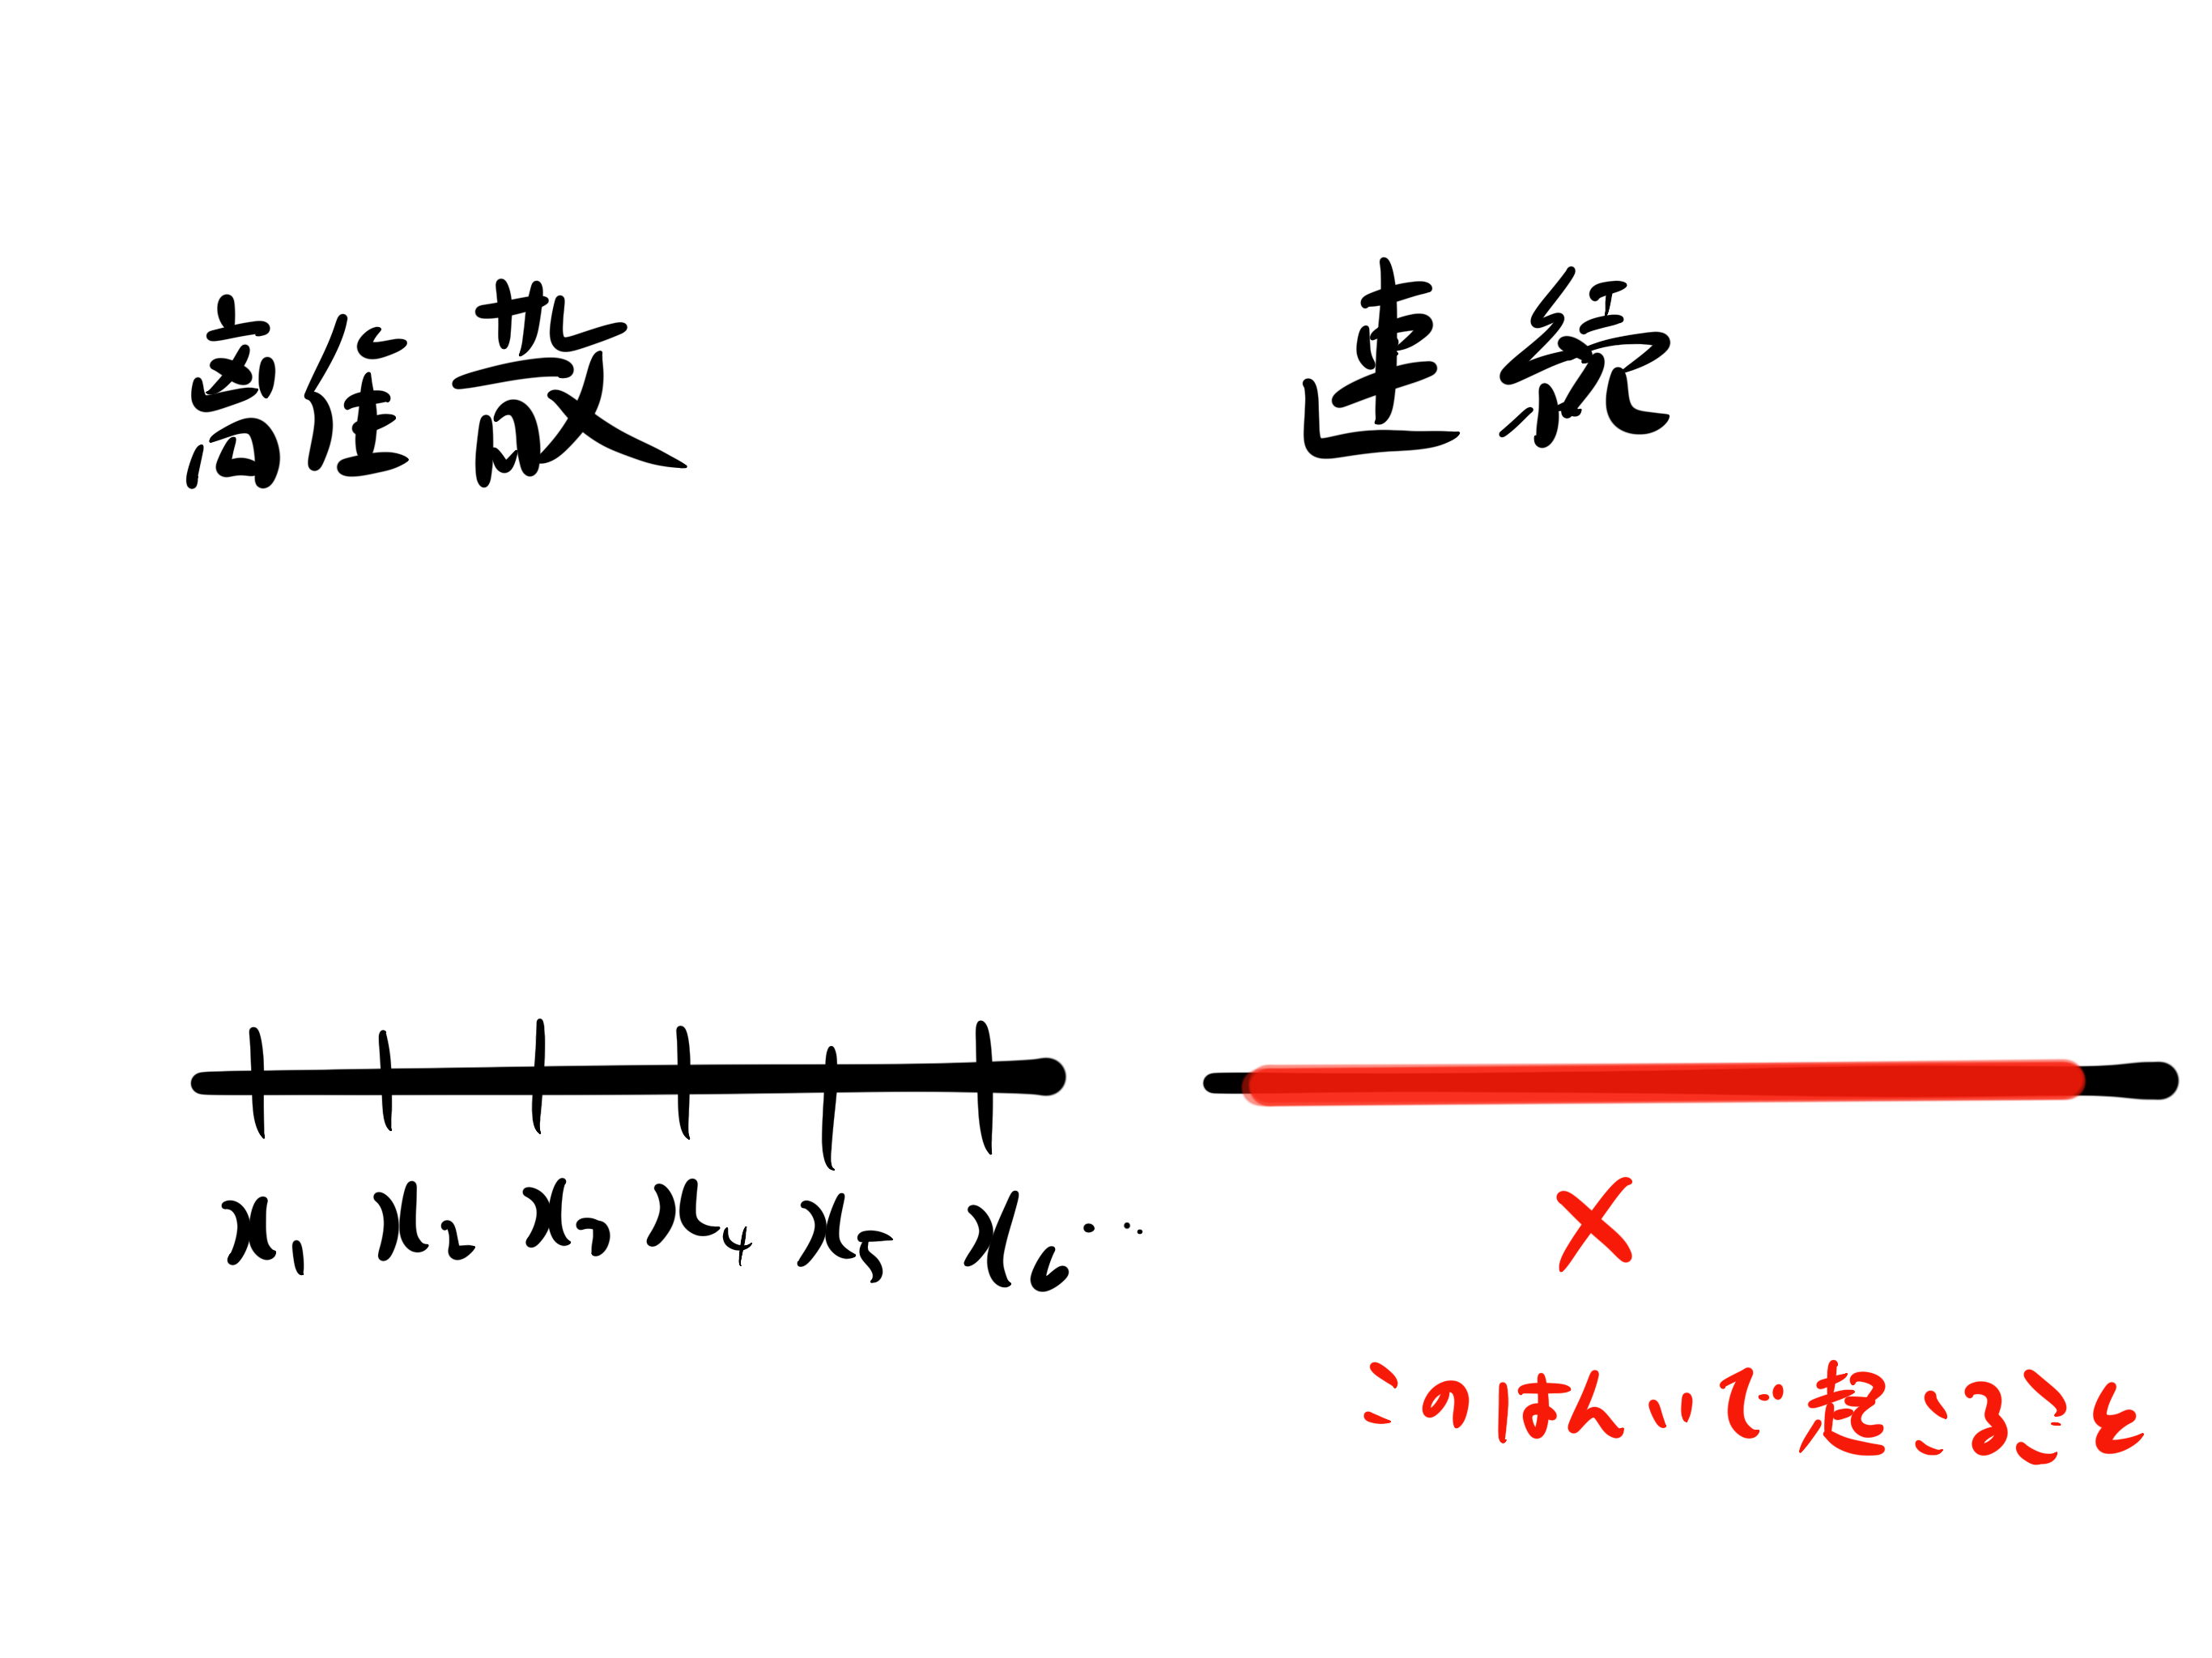 離散
連続
x₁ x₂ x₃ x₄ x₅ x₆ ...
x
このはんいで起こること